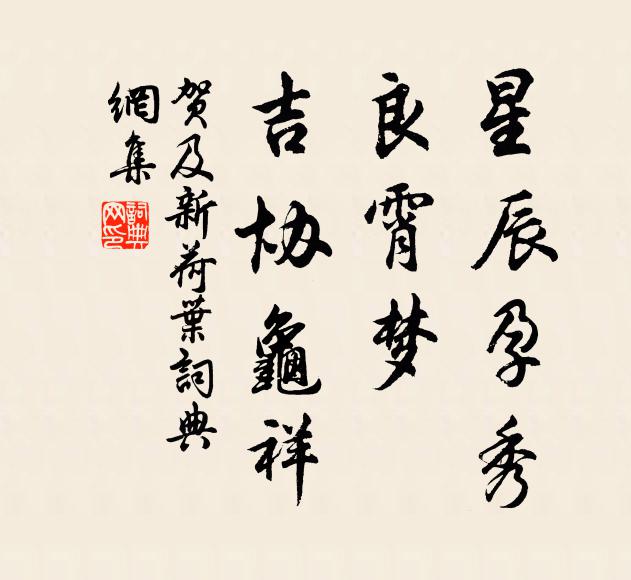 星辰孕秀
良霄梦
吉协龜祥
贺及新荷葉詞典
網集
詞典
网印